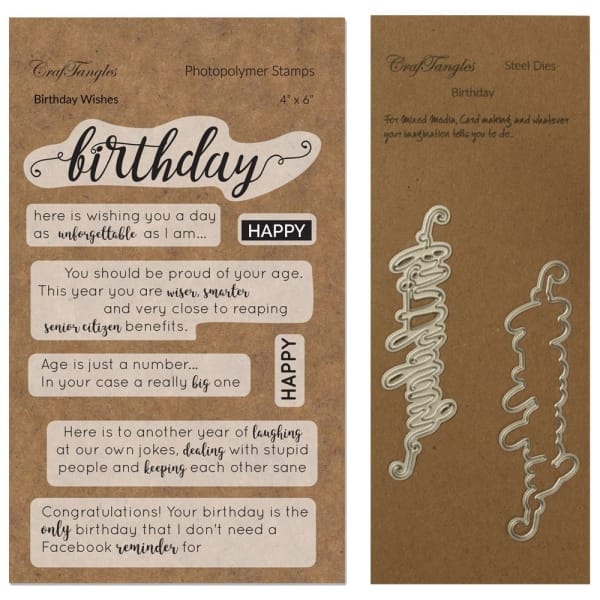 CrafTangles
Photopolymer Stamps
Birthday Wishes
4" x 6"
birthday
here is wishing you a day
as unforgettable as I am...
HAPPY
You should be proud of your age.
This year you are wiser, smarter
and very close to reaping
senior citizen benefits.
Age is just a number...
In your case a really big one
HAPPY
Here is to another year of laughing
at our own jokes, dealing with stupid
people and keeping each other sane
Congratulations! Your birthday is the
only birthday that I don't need a
Facebook reminder for
CrafTangles
Steel Dies
Birthday
For Mixed Media, Card making and whatever
your imagination tells you to do...
birthday